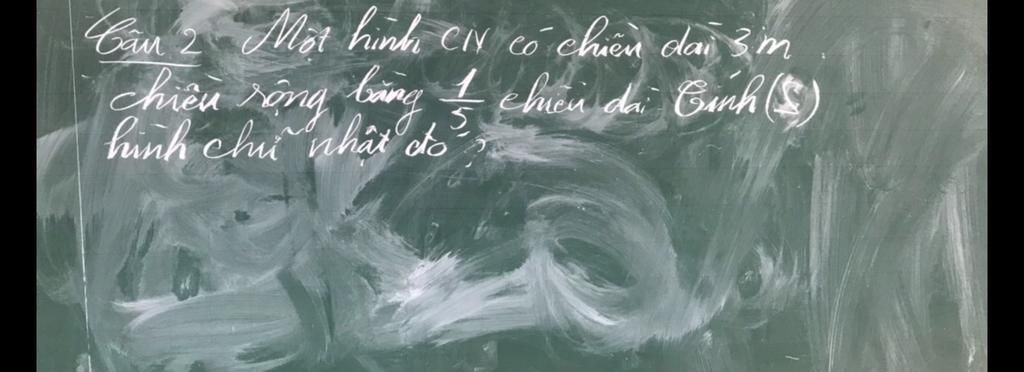 Câu 2 Một hình CN có chiều dài 3m
chiều rộng bằng 1/5 chiều dài Tính (S)
hình chữ nhật đó?